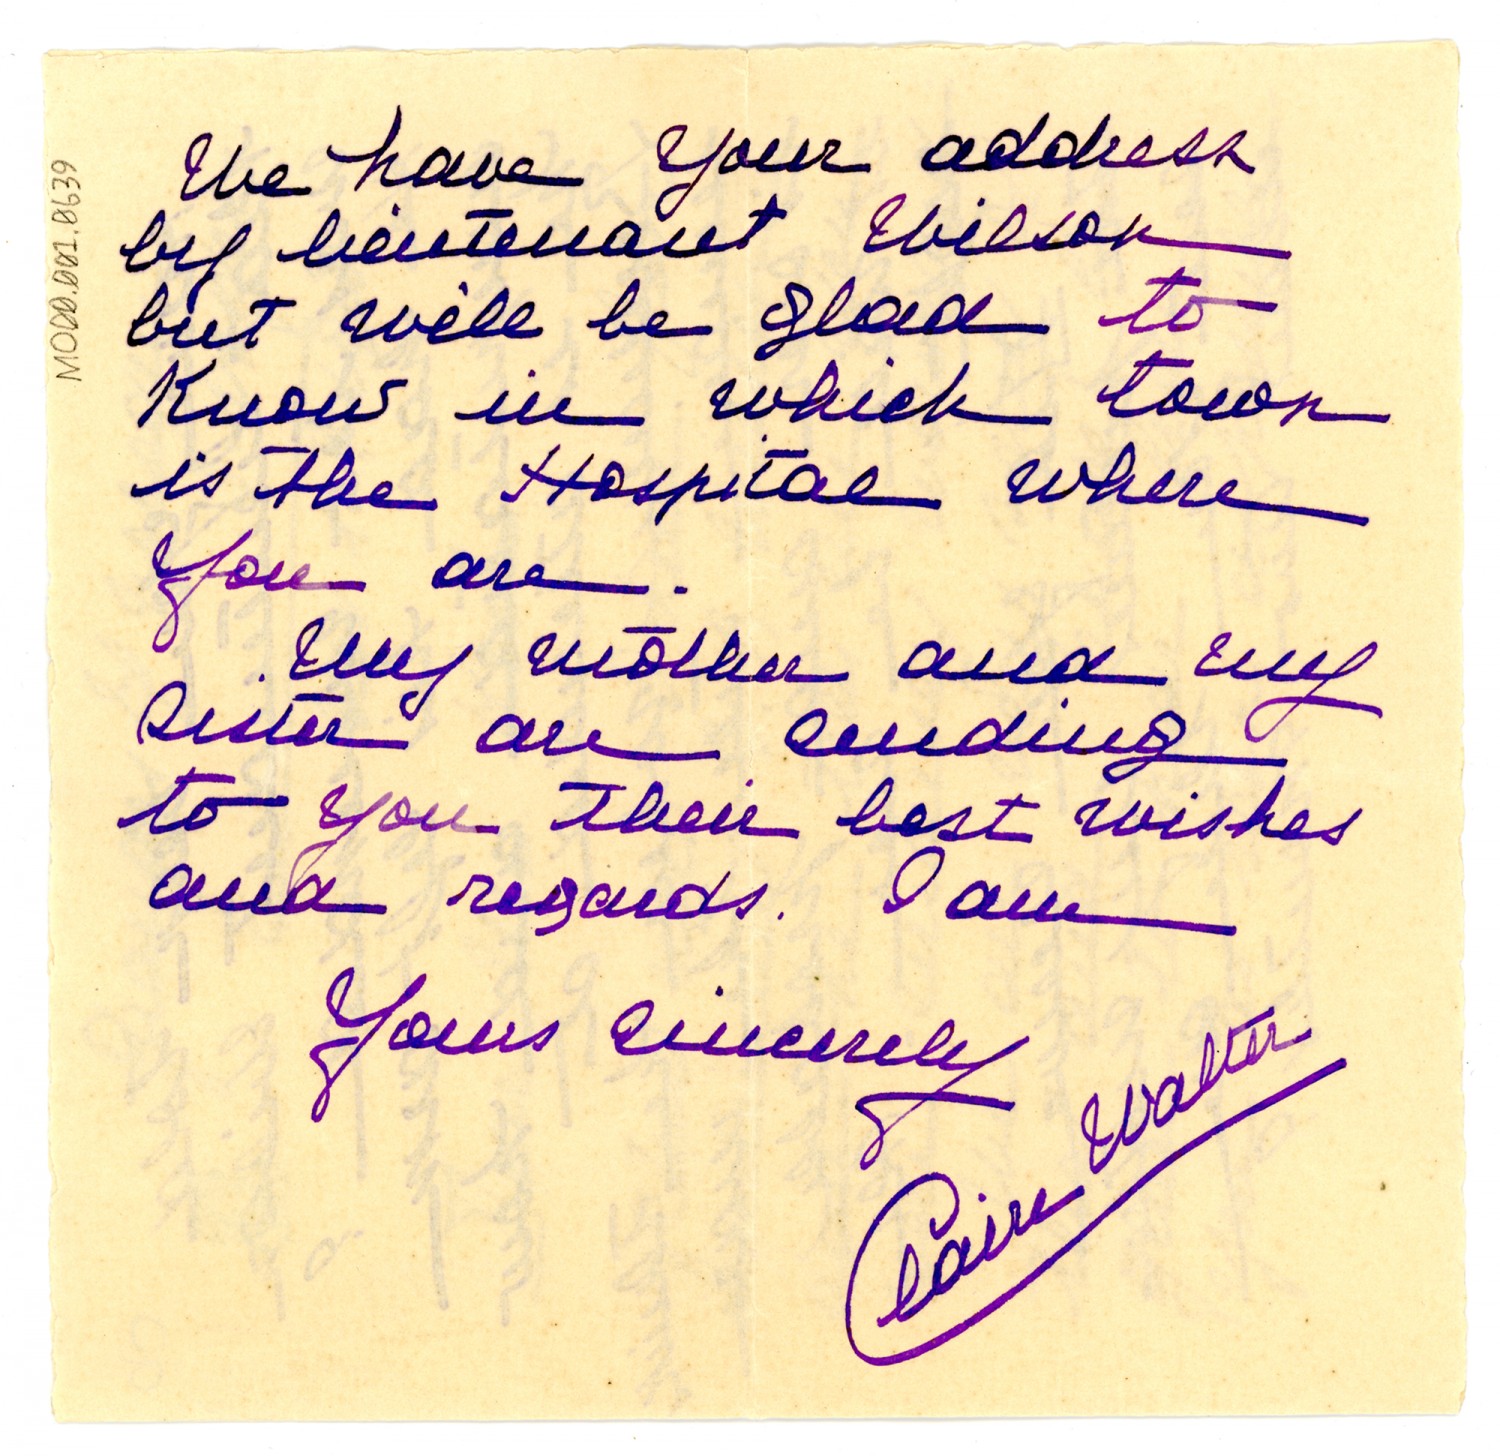 M000.001.0639
We have your address
by lieutenant Wilson
but will be glad to
Know in which town
is the Hospital where
you are.
My mother and my
sister are sending
to you their best wishes
and regards. I am
Yours sincerely
Claire Walter